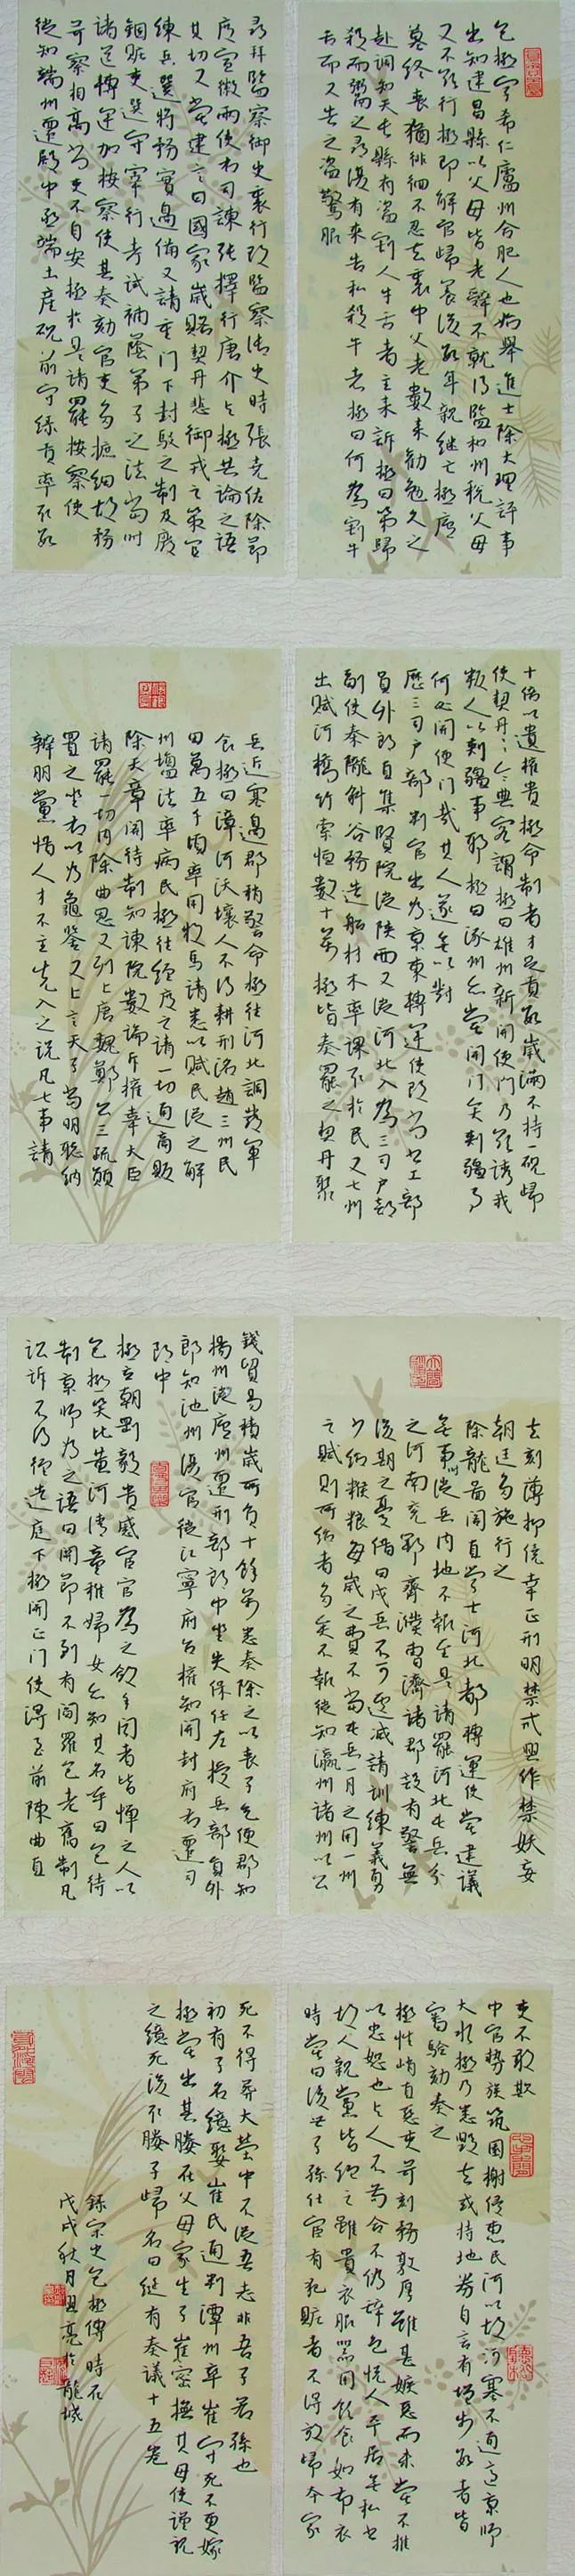 包拯字希仁廬州合肥人也始舉進士除大理評事
出知建昌縣以父母皆老辭不就得監和州稅父母
又不欲行拯即解官歸養後數年親繼亡拯廬
墓終喪猶徘徊不忍去里中父老數來勸勉久之
赴調知天長縣有盜割人牛舌者主來訴拯曰第歸
殺而鬻之尋復有來告私殺牛者拯曰何為割牛
舌而又告之盜驚服
尋拜監察御史裏行改監察御史時張堯佐除節
度宣徽兩使右司諫張擇行唐介與拯共論之語
甚切又嘗建言曰國家歲賂契丹非御戎之策宜
練兵選將務實邊備又請重門下封駁之制及廢
錮贓吏選守宰行考試補蔭弟子之法當時
諸道轉運加按察使其奏劾官吏多摭細故務
苛察相高尚吏不自安拯於是請罷按察使
徙知端州遷殿中丞端土產硯前守緣貢率取數
十倍以遺權貴拯命制者才足貢數歲滿不持一硯歸
使契丹契丹令典客謂拯曰雄州新開便門乃欲誘我
叛人以刺疆事耶拯曰涿州亦嘗開門矣刺疆事
何必開便門哉其人遂無以對
歷三司戶部判官出為京東轉運使改尚書工部
員外郎直集賢院徙陝西又徙河北入為三司戶部
副使秦隴斜谷務造船材木率課取於民又七州
出賦河橋竹索恒數十萬拯皆奏罷之契丹聚
兵近塞邊郡稍警命拯往河北調發軍
食拯曰漳河沃壤人不得耕邢洺趙三州民
田萬五千頃率用牧馬請悉以賦民從之解
州鹽法率病民拯往經度之請一切通商販
除天章閣待制知諫院數論斥權幸大臣
請罷一切內除曲恩又列上唐魏鄭公三疏願
置之坐右以為龜鑒又上言天子當明聽納
辨朋黨惜人才不主先入之說凡七事請
去刻薄抑僥幸正刑明禁戒興作禁妖妄
朝廷多施行之
除龍圖閣直學士河北都轉運使嘗建議
無事時徙兵內地不報至是請罷河北屯兵分
之河南兗鄆齊濮曹濟諸郡設有警無
後期之憂借曰戍兵不可遽減請訓練義勇
少給糇糧每歲之費不當屯兵一月之用一州
之賦則所給者多矣不報徙知瀛州諸州以公
錢貿易積歲所負十餘萬悉奏除之以喪子乞便郡知
揚州徙廬州遷刑部郎中坐失保任左授兵部員外
郎知池州復官徙江寧府召權知開封府右遷司
郎中
拯立朝剛毅貴戚宦官為之斂手聞者皆憚之人以
包拯笑比黃河清童稚婦女亦知其名呼曰包待
制京師為之語曰關節不到有閻羅包老舊制凡
訟訴不得徑造庭下拯開正門使得至前陳曲直
吏不敢欺
中官勢族築園榭侵惠民河以故河塞不通適京師
大水拯乃悉毀去或持地券自言有偽步數者皆
審驗劾奏之
拯性峭直惡吏苛刻務敦厚雖甚嫉惡而未嘗不推
以忠恕也與人不苟合不偽辭色悅人平居無私書
故人親黨皆絕之雖貴衣服器用飲食如布衣
時嘗曰後世子孫仕宦有犯贓者不得放歸本家
死不得葬大塋中不從吾志非吾子若孫也
初有子名繶娶崔氏通判潭州卒崔守死不更嫁
拯嘗出其媵在父母家生子崔密撫其母使謹視
之繶死後取媵子歸名曰綖有奏議十五卷
錄宋史包拯傳 時在
戊戌秋月